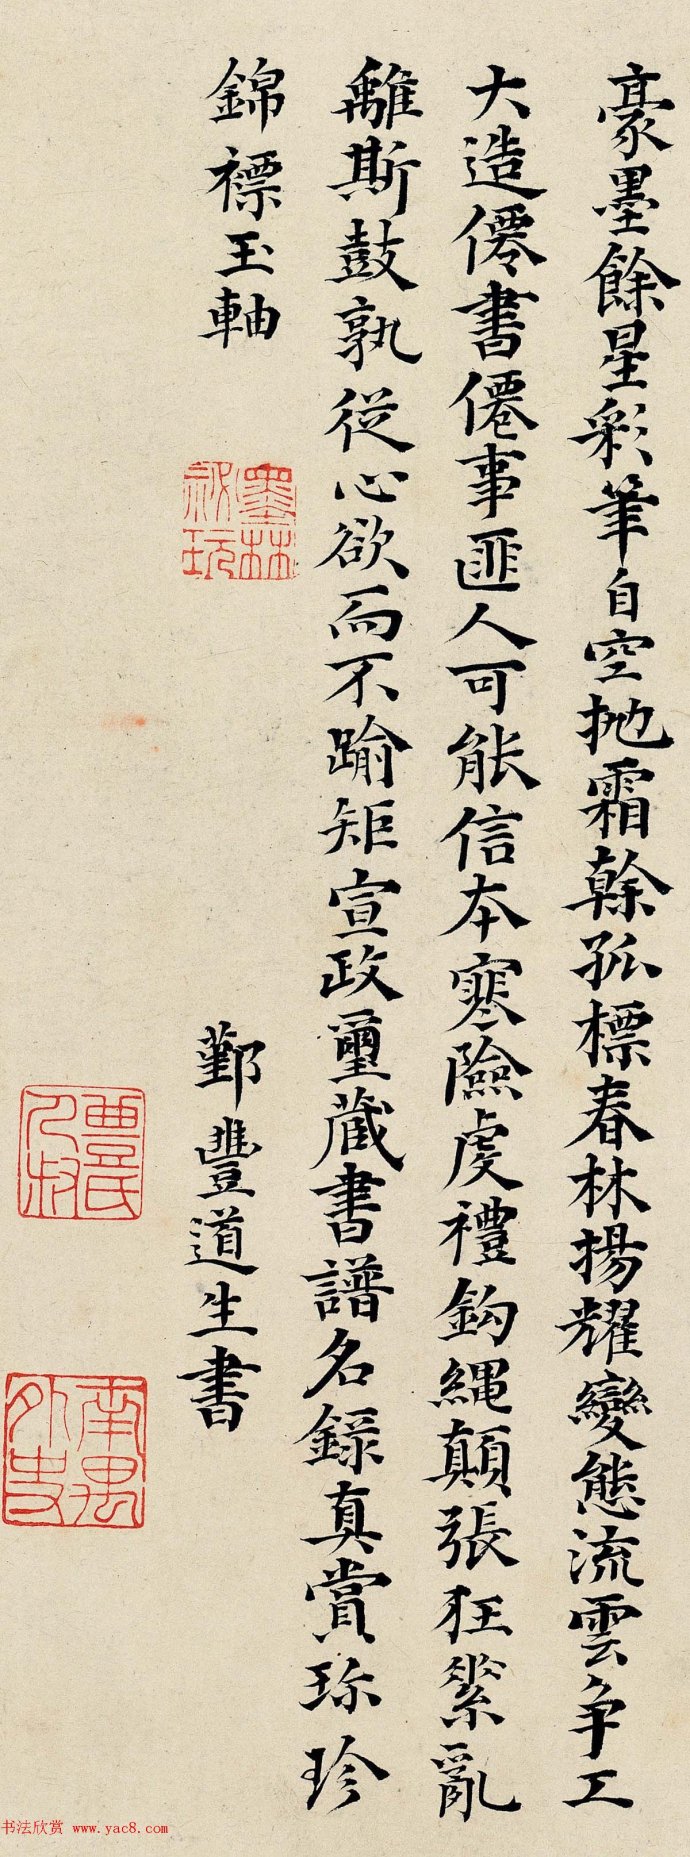 豪墨餘星彩筆自空拋霜榦孤標春林揚耀變態流雲爭工
大造僊書僊事匪人可能信本寒險虔禮鈎繩顛張狂縈亂
雖斯鼓孰從心欲而不踰矩宣政璽藏書譜名錄真賞珎珍
錦褾玉軸
鄞豐道生書
墨林祕玩
豐氏人叔
南禺外史
书法欣赏 www.yac8.com